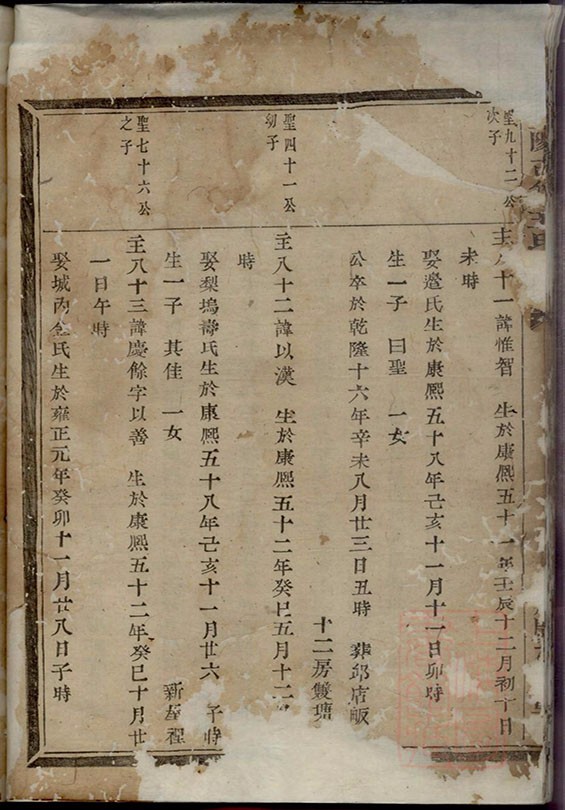 聖九十二公
次子
主八十一諱惟智 生於康熙五十一年壬辰十二月初十日
未時
娶邉氏生於康熙五十八年己亥十一月十一日卯時
生一子 曰聖 一女
公卒於乾隆十六年辛未八月廿三日丑時 葬邱店畈
十二房雙塘
聖四十一公
幼子
主八十二諱以漢 生於康熙五十二年癸巳五月十二
時
娶梨塢壽氏生於康熙五十八年己亥十一月廿六 子時
生一子 其佳 一女 新屋程
聖七十六公
之子
主八十三諱慶餘字以善 生於康熙五十二年癸巳十月廿
一日午時
娶城內金氏生於雍正元年癸卯十一月廿八日子時